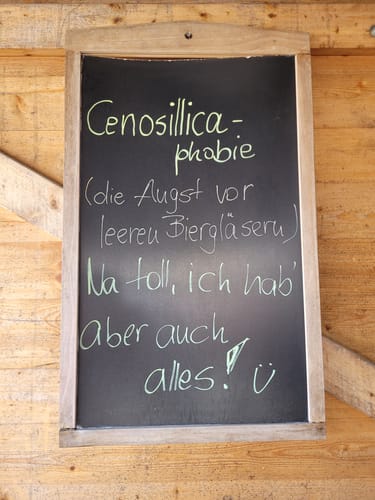 Cenosillica-
phobie
(die Angst vor
leeren Biergläsern)
Na toll, ich hab'
aber auch
alles! Ü